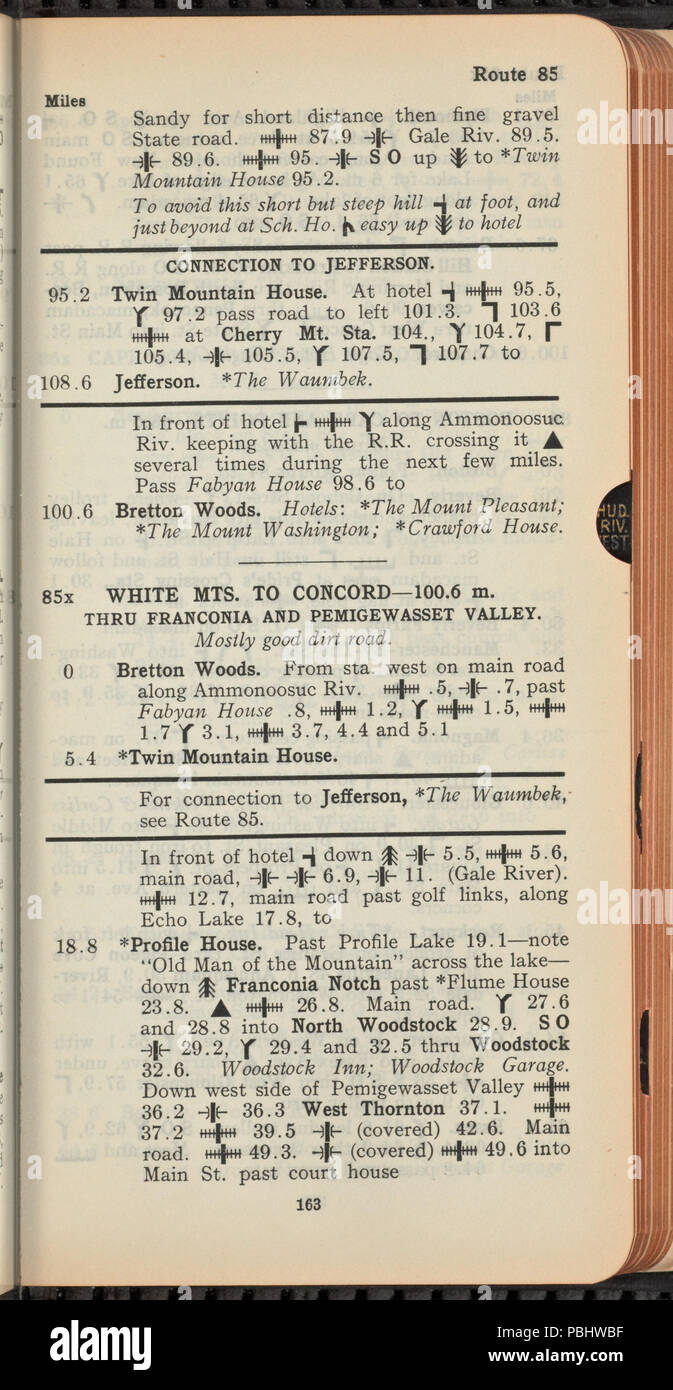 Route 85
Miles
Sandy for short distance then fine gravel
State road. 87.9 Gale Riv. 89.5.
89.6. 95. S O up to *Twin
Mountain House 95.2.
To avoid this short but steep hill at foot, and
just beyond at Sch. Ho. easy up to hotel
CONNECTION TO JEFFERSON.
95.2 Twin Mountain House. At hotel 95.5,
97.2 pass road to left 101.3. 103.6
at Cherry Mt. Sta. 104., 104.7,
105.4, 105.5, 107.5, 107.7 to
108.6 Jefferson. *The Waumbek.
In front of hotel along Ammonoosuc
Riv. keeping with the R.R. crossing it
several times during the next few miles.
Pass Fabyan House 98.6 to
100.6 Bretton Woods. Hotels: *The Mount Pleasant;
*The Mount Washington; *Crawford House.
HUD.
RIV.
EST
85x WHITE MTS. TO CONCORD—100.6 m.
THRU FRANCONIA AND PEMIGEWASSET VALLEY.
Mostly good dirt road.
0 Bretton Woods. From sta. west on main road
along Ammonoosuc Riv. .5, .7, past
Fabyan House .8, 1.2, 1.5,
1.7 3.1, 3.7, 4.4 and 5.1
5.4 *Twin Mountain House.
For connection to Jefferson, *The Waumbek,
see Route 85.
In front of hotel down 5.5, 5.6,
main road, 6.9, 11. (Gale River).
12.7, main road past golf links, along
Echo Lake 17.8, to
18.8 *Profile House. Past Profile Lake 19.1—note
"Old Man of the Mountain" across the lake—
down Franconia Notch past *Flume House
23.8. 26.8. Main road. 27.6
and 28.8 into North Woodstock 28.9. S O
29.2, 29.4 and 32.5 thru Woodstock
32.6. Woodstock Inn; Woodstock Garage.
Down west side of Pemigewasset Valley
36.2 36.3 West Thornton 37.1.
37.2 39.5 (covered) 42.6. Main
road. 49.3. (covered) 49.6 into
Main St. past court house
163
alamy
Image ID: PBHWBF
www.alamy.com